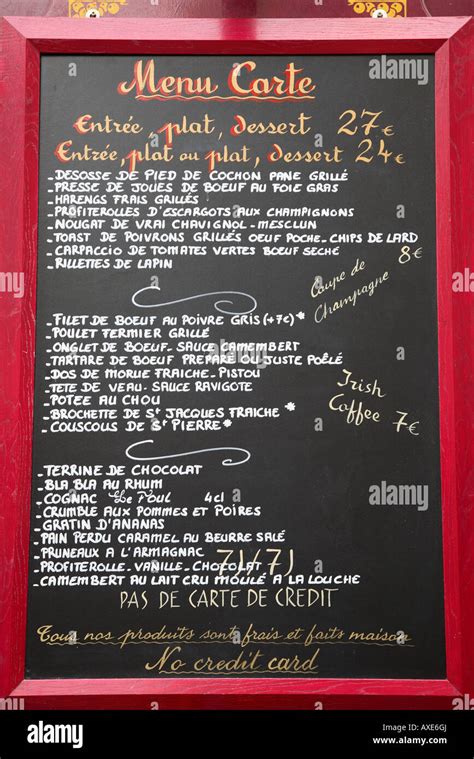 Menu Carte
Entrée, plat, dessert 27€
Entrée, plat ou plat, dessert 24€
-DESOSSE DE PIED DE COCHON PANE GRILLÉ
-PRESSE DE JOUES DE BOEUF AU FOIE GRAS
-HARENGS FRAIS GRILLÉS
-PROFITEROLLES D'ESCARGOTS AUX CHAMPIGNONS
-NOUGAT DE VRAI CHAVIGNOL-MESCLUN
-TOAST DE POIVRONS GRILLÉS OEUF POCHE-CHIPS DE LARD
-CARPACCIO DE TOMATES VERTES BOEUF SECHÉ
-RILLETTES DE LAPIN
8€
Coupe de
Champagne
-FILET DE BOEUF AU POIVRE GRIS (+7€)*
-POULET FERMIER GRILLÉ
-ONGLET DE BOEUF-SAUCE CAMEMBERT
-TARTARE DE BOEUF PREPARÉ OU JUSTE POÊLÉ
-DOS DE MORUE FRAICHE-PISTOU
-TETE DE VEAU-SAUCE RAVIGOTE
-POTEE AU CHOU
-BROCHETTE DE St JACQUES FRAICHE *
-COUSCOUS DE St PIERRE *
Irish
Coffee 7€
-TERRINE DE CHOCOLAT
-BLA BLA AU RHUM
-COGNAC Le Poul 4cl
-CRUMBLE AUX POMMES ET POIRES
-GRATIN D'ANANAS
-PAIN PERDU CARAMEL AU BEURRE SALÉ
-PRUNEAUX A L'ARMAGNAC
-PROFITEROLE-VANILLE-CHOCOLAT
-CAMEMBERT AU LAIT CRU MOULÉ A LA LOUCHE
PAS DE CARTE DE CREDIT
Tous nos produits sont frais et faits maison
No credit card
alamy
Image ID: AXE6GJ
www.alamy.com